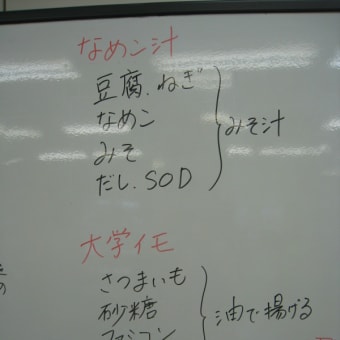 なめこ汁
豆腐、ねぎ
なめこ
みそ
だし、SOD
みそ汁
大学イモ
さつまいも
砂糖
油で揚げる